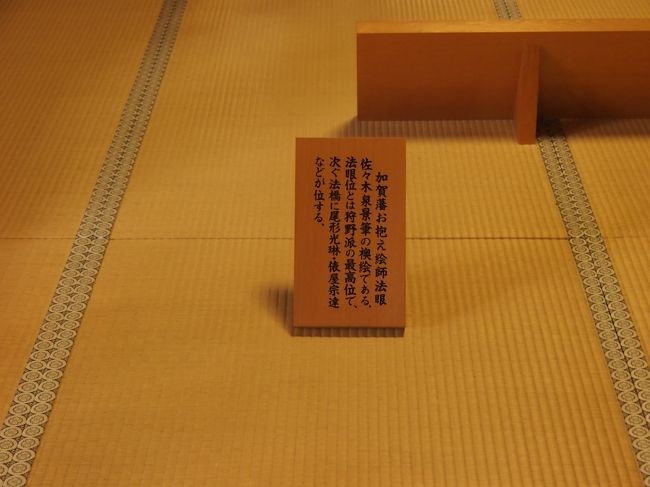 加賀藩お抱え絵師法眼
佐々木泉景筆の襖絵である。
法眼位とは狩野派の最高位で、
次ぐ法橋に尾形光琳・俵屋宗達
などが位する。